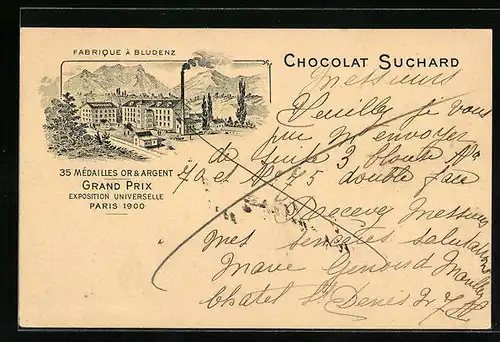 FABRIQUE À BLUDENZ
CHOCOLAT SUCHARD
35 MÉDAILLES OR & ARGENT
GRAND PRIX
EXPOSITION UNIVERSELLE
PARIS 1900
Messieurs
Veuillez je vous
prie m'envoyer
de suite 3 blouse No
70 et No 75 double face
Recevez Messieurs
mes sincères salutations
Marie Genoud
Chatel St Denis